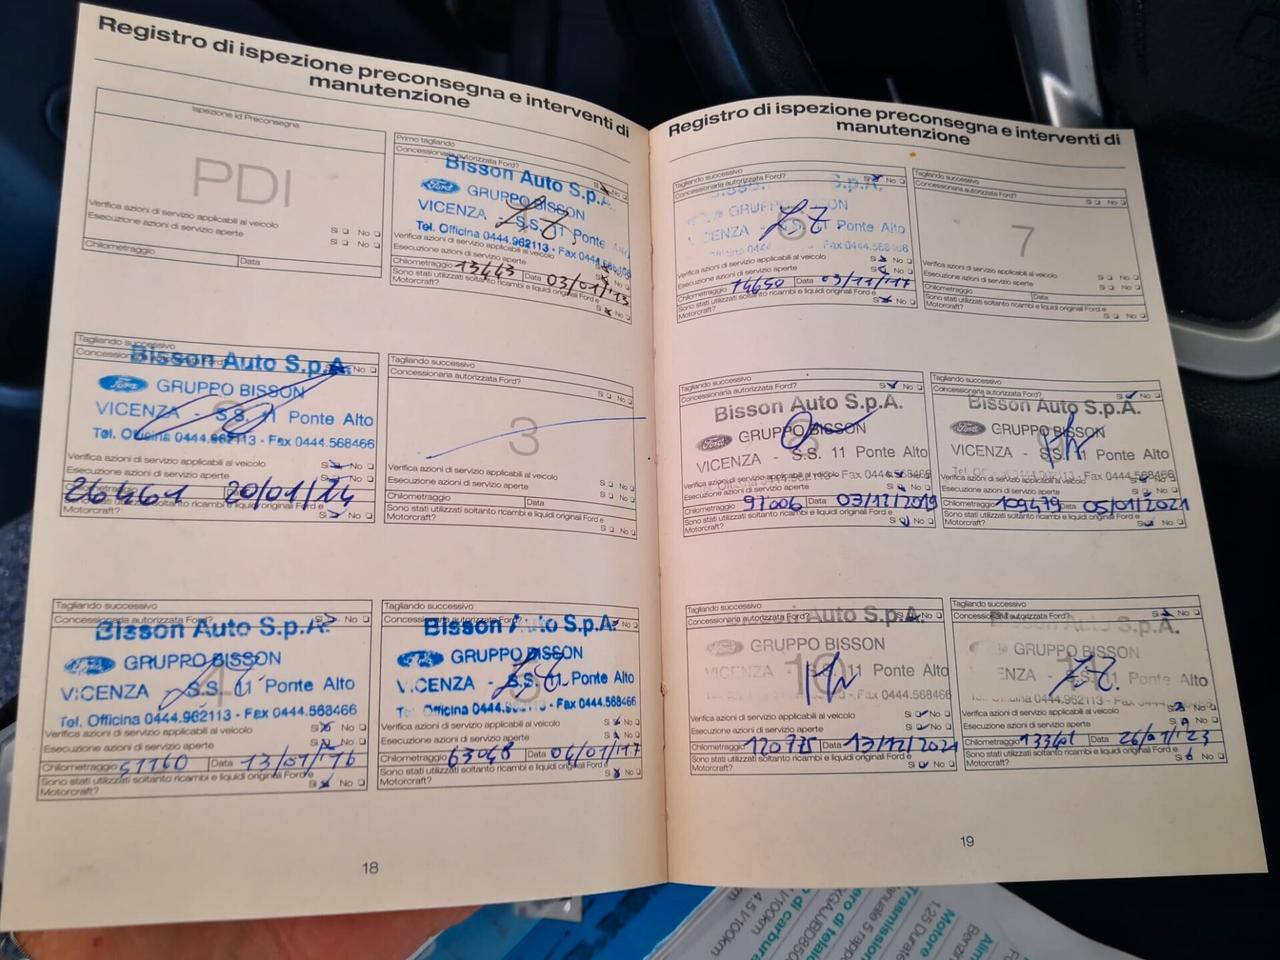 Registro di ispezione preconsegna e interventi di
manutenzione
Ispezione id Preconsegna
PDI
Verifica azioni di servizio applicabili al veicolo
Esecuzione azioni di servizio aperte
Si No
Si No
Chilometraggio Data
Primo tagliando
Concessionaria autorizzata Ford?
Bisson Auto S.p.A.
Ford GRUPPO BISSON
VICENZA - S.S. 11 Ponte Alto
Tel. Officina 0444.962113 - Fax 0444.568466
Verifica azioni di servizio applicabili al veicolo
Esecuzione azioni di servizio aperte
Chilometraggio 13443 Data 03/01/13
Sono stati utilizzati soltanto ricambi e liquidi originali Ford e
Motorcraft? Si No
Tagliando successivo
Concessionaria autorizzata Ford? Si No
Bisson Auto S.p.A.
Ford GRUPPO BISSON
VICENZA - S.S. 11 Ponte Alto
Tel. Officina 0444.962113 - Fax 0444.568466
Verifica azioni di servizio applicabili al veicolo Si No
Esecuzione azioni di servizio aperte
26461 20/01/14
Motorcraft? Si No
Tagliando successivo
Concessionaria autorizzata Ford?
Si No
3
Verifica azioni di servizio applicabili al veicolo
Esecuzione azioni di servizio aperte
Si No
Si No
Chilometraggio Data
Sono stati utilizzati soltanto ricambi e liquidi originali Ford e
Motorcraft? Si No
Tagliando successivo
Concessionaria autorizzata Ford? Si No
Bisson Auto S.p.A.
GRUPPO BISSON
4
VICENZA - S.S. 11 Ponte Alto
Tel. Officina 0444.962113 - Fax 0444.568466
Verifica azioni di servizio applicabili al veicolo Si No
Esecuzione azioni di servizio aperte Si No
Chilometraggio 51160 Data 13/01/16
Sono stati utilizzati soltanto ricambi e liquidi originali Ford e
Motorcraft? Si No
Tagliando successivo
Concessionaria autorizzata Ford? No
Bisson Auto S.p.A.
GRUPPO BISSON
VICENZA - S.S. 11 Ponte Alto
Tel. Officina 0444.962113 - Fax 0444.568466
Verifica azioni di servizio applicabili al veicolo Si No
Esecuzione azioni di servizio aperte Si No
Chilometraggio 63048 Data 04/01/17
Sono stati utilizzati soltanto ricambi e liquidi originali Ford e
Motorcraft? Si No
18
Registro di ispezione preconsegna e interventi di
manutenzione
Tagliando successivo
Concessionaria autorizzata Ford? Si No
S.p.A.
GRUPPO BISSON
VICENZA - S.S. 11 Ponte Alto
Fax 0444.568466
Verifica azioni di servizio applicabili al veicolo Si No
Esecuzione azioni di servizio aperte Si No
Chilometraggio 74650 Data 03/11/17
Sono stati utilizzati soltanto ricambi e liquidi originali Ford e
Motorcraft? Si No
Tagliando successivo
Concessionaria autorizzata Ford?
Si No
7
Verifica azioni di servizio applicabili al veicolo
Esecuzione azioni di servizio aperte
Si No
Si No
Chilometraggio Data
Sono stati utilizzati soltanto ricambi e liquidi originali Ford e
Motorcraft? Si No
Tagliando successivo
Concessionaria autorizzata Ford? Si No
Bisson Auto S.p.A.
Ford GRUPPO BISSON
VICENZA - S.S. 11 Ponte Alto
Fax 0444.568466
Verifica azioni di servizio applicabili al veicolo
Esecuzione azioni di servizio aperte Si No
Chilometraggio 97006 03/12/2019
Sono stati utilizzati soltanto ricambi e liquidi originali Ford e
Motorcraft? Si No
Tagliando successivo
Concessionaria autorizzata Ford? Si No
Bisson Auto S.p.A.
Ford GRUPPO BISSON
VICENZA - S.S. 11 Ponte Alto
Verifica azioni di servizio applicabili al veicolo
Esecuzione azioni di servizio aperte Si No
Chilometraggio 109479 Data 05/01/2021
Sono stati utilizzati soltanto ricambi e liquidi originali Ford e
Motorcraft? No
Tagliando successivo
Concessionaria autorizzata Ford? No
Auto S.p.A.
GRUPPO BISSON
10
VICENZA 11 Ponte Alto
Fax 0444.568466
Verifica azioni di servizio applicabili al veicolo Si No
Esecuzione azioni di servizio aperte Si No
Chilometraggio 120775 Data 13/12/2021
Sono stati utilizzati soltanto ricambi e liquidi originali Ford e
Motorcraft? Si No
Tagliando successivo
Concessionaria autorizzata Ford? Si No
S.p.A.
GRUPPO BISSON
11
S.S. 11 Ponte Alto
Officina 0444.962113 - Fax 0444.568466
Verifica azioni di servizio applicabili al veicolo No
Esecuzione azioni di servizio aperte Si No
Chilometraggio 133601 Data 26/01/23
Sono stati utilizzati soltanto ricambi e liquidi originali Ford e
Motorcraft? Si No
19
4.5 l/100km
Trasmissione
Motore